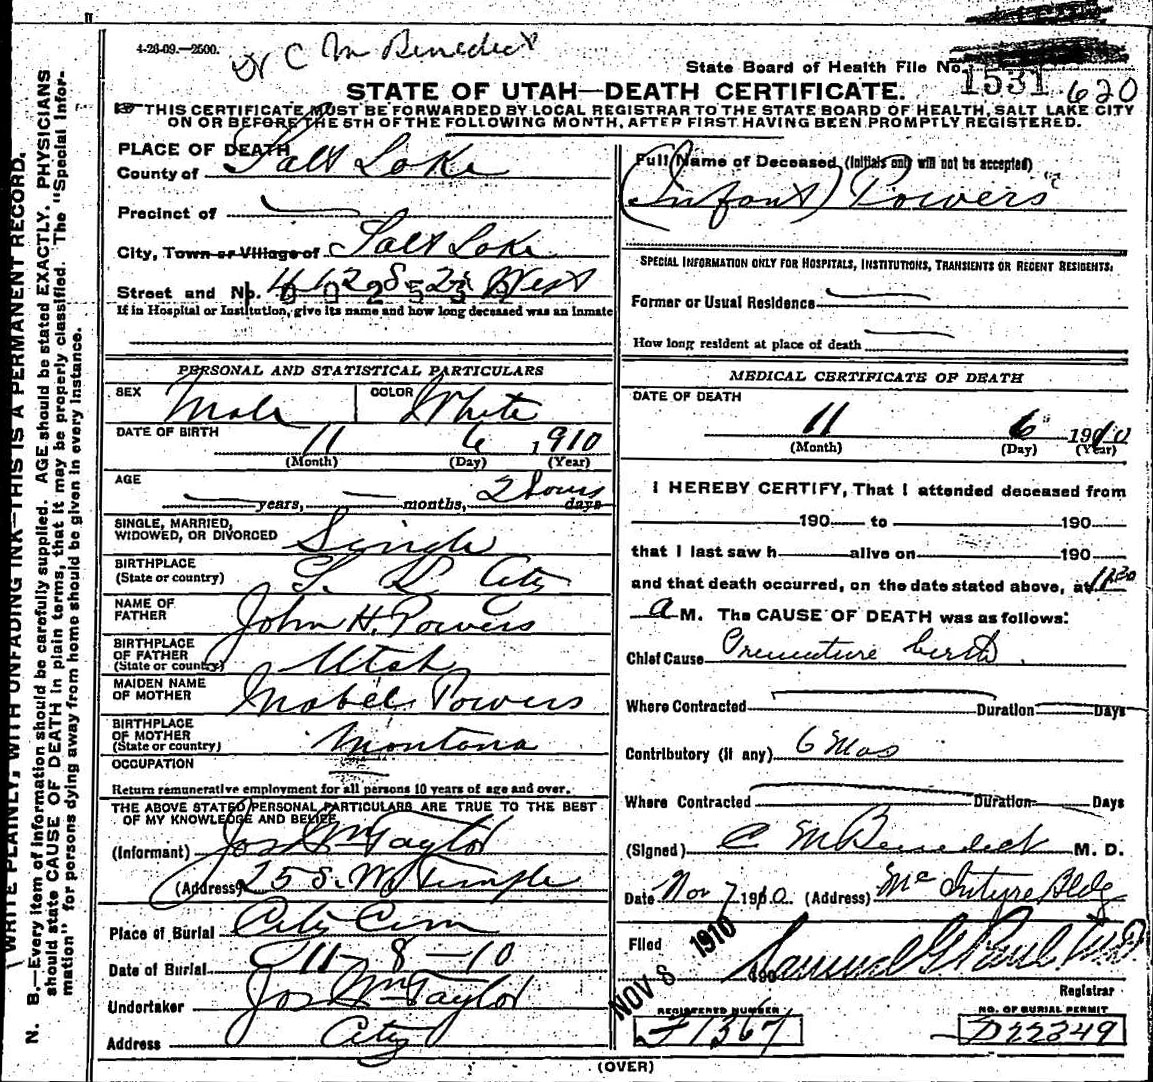 4-26-09.—2500.
Dr C M Benedict
State Board of Health File No. 1531 620
STATE OF UTAH—DEATH CERTIFICATE.
THIS CERTIFICATE MUST BE FORWARDED BY LOCAL REGISTRAR TO THE STATE BOARD OF HEALTH, SALT LAKE CITY
ON OR BEFORE THE 5TH OF THE FOLLOWING MONTH, AFTER FIRST HAVING BEEN PROMPTLY REGISTERED.
WRITE PLAINLY, WITH UNFADING INK—THIS IS A PERMANENT RECORD.
N. B.—Every item of information should be carefully supplied. AGE should be stated EXACTLY. PHYSICIANS
should state CAUSE OF DEATH in plain terms, that it may be properly classified. The "Special Infor-
mation" for persons dying away from home should be given in every instance.
PLACE OF DEATH
County of Salt Lake
Precinct of
City, Town or Village of Salt Lake
Street and No. West
If in Hospital or Institution, give its name and how long deceased was an inmate
PERSONAL AND STATISTICAL PARTICULARS
SEX Male COLOR White
DATE OF BIRTH 11 6 1910
(Month) (Day) (Year)
AGE years, months, 2 hours days
SINGLE, MARRIED,
WIDOWED, OR DIVORCED Single
BIRTHPLACE
(State or country) S. L. City
NAME OF
FATHER John H. Powers
BIRTHPLACE
OF FATHER
(State or country) Utah
MAIDEN NAME
OF MOTHER Mabel Powers
BIRTHPLACE
OF MOTHER
(State or country) Montana
OCCUPATION
Return remunerative employment for all persons 10 years of age and over.
THE ABOVE STATED PERSONAL PARTICULARS ARE TRUE TO THE BEST
OF MY KNOWLEDGE AND BELIEF
(Informant) Jos Wm Taylor
(Address) 25 S. W. Temple
Place of Burial City Cem
Date of Burial 11-8-10
Undertaker Jos Wm Taylor
Address City
Full Name of Deceased (Initials only will not be accepted)
(Infant) Powers
SPECIAL INFORMATION ONLY FOR HOSPITALS, INSTITUTIONS, TRANSIENTS OR RECENT RESIDENTS.
Former or Usual Residence
How long resident at place of death
MEDICAL CERTIFICATE OF DEATH
DATE OF DEATH
11 6 1910
(Month) (Day) (Year)
I HEREBY CERTIFY, That I attended deceased from
190 to 190
that I last saw h alive on 190
and that death occurred, on the date stated above, at 11:30
a M. The CAUSE OF DEATH was as follows:
Chief Cause Premature birth
Where Contracted Duration Days
Contributory (if any) 6 Mos
Where Contracted Duration Days
(Signed) C M Benedict M. D.
Date Nov 7 1910. (Address) McIntyre Bldg
Filed NOV 8 1910 190 Samuel G Paul M.D.
Registrar
REGISTERED NUMBER
J1367
NO. OF BURIAL PERMIT
D22349
(OVER)